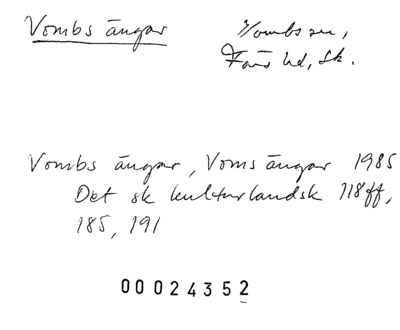 Vombs ängar
Vombs sn,
Färs hd, Sk.
Vombs ängar, Voms ängar 1985
Det sk kulturlandsk 118ff,
185, 191
00024352